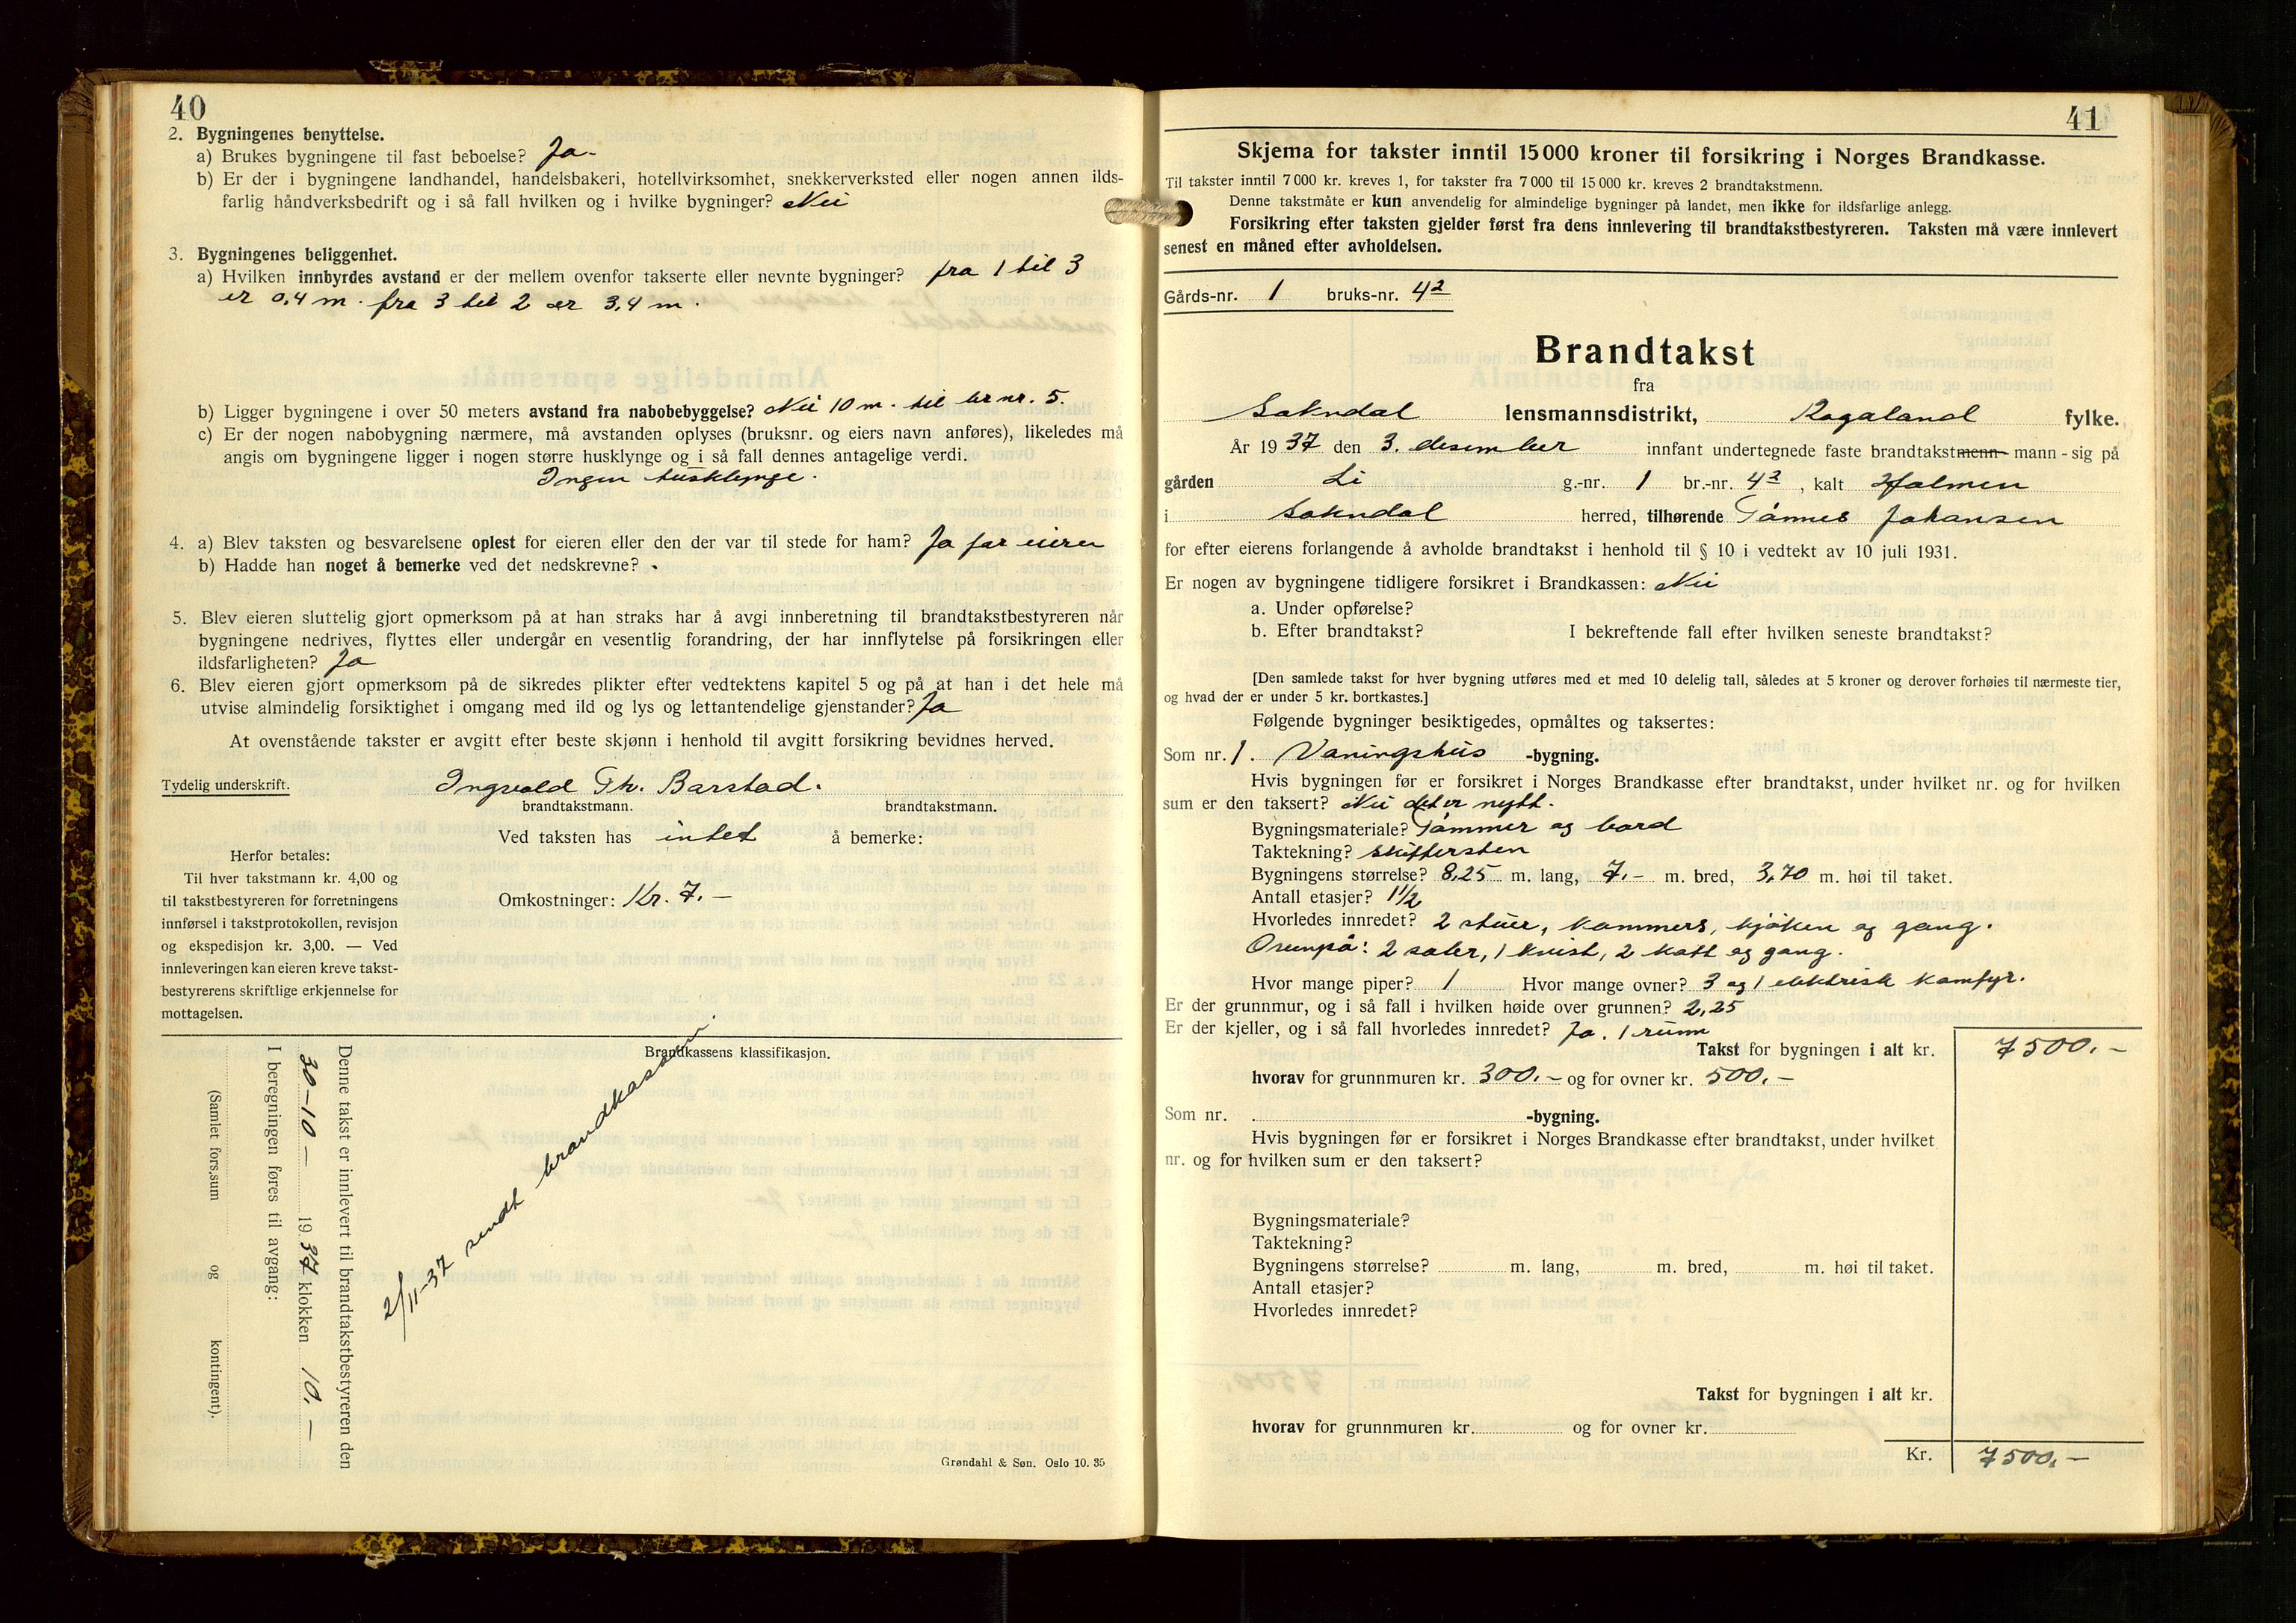 40
2. Bygningenes benyttelse.
a) Brukes bygningene til fast beboelse? Ja-
b) Er der i bygningene landhandel, handelsbakeri, hotellvirksomhet, snekkerverksted eller nogen annen ilds-
farlig håndverksbedrift og i så fall hvilken og i hvilke bygninger? Nei
3. Bygningenes beliggenhet.
a) Hvilken innbyrdes avstand er der mellem ovenfor takserte eller nevnte bygninger? fra 1 til 3
er 0,4 m. fra 3 til 2 er 3,4 m.
b) Ligger bygningene i over 50 meters avstand fra nabobebyggelse? Nei 10 m. til br nr. 5.
c) Er der nogen nabobygning nærmere, må avstanden oplyses (bruksnr. og eiers navn anføres), likeledes må
angis om bygningene ligger i nogen større husklynge og i så fall dennes antagelige verdi.
Ingen husklynge.
4. a) Blev taksten og besvarelsene oplest for eieren eller den der var til stede for ham? Ja for eieren
b) Hadde han noget å bemerke ved det nedskrevne?
5. Blev eieren sluttelig gjort opmerksom på at han straks har å avgi innberetning til brandtakstbestyreren når
bygningene nedrives, flyttes eller undergår en vesentlig forandring, der har innflytelse på forsikringen eller
ildsfarligheten? Ja
6. Blev eieren gjort opmerksom på de sikredes plikter efter vedtektens kapitel 5 og på at han i det hele må
utvise almindelig forsiktighet i omgang med ild og lys og lettantendelige gjenstander? Ja
At ovenstående takster er avgitt efter beste skjønn i henhold til avgitt forsikring bevidnes herved.
Tydelig underskrift. Ingvald Th. Barstad.
brandtakstmann. brandtakstmann.
Ved taksten has intet å bemerke:
Herfor betales:
Til hver takstmann kr. 4,00 og
til takstbestyreren for forretningens
innførsel i takstprotokollen, revisjon
og ekspedisjon kr. 3,00. — Ved
innleveringen kan eieren kreve takst-
bestyrerens skriftlige erkjennelse for
mottagelsen.
Omkostninger: Kr. 7.—
Brandkassens klassifikasjon.
2/11-37 sendt brandkassen.
Denne takst er innlevert til brandtakstbestyreren den
30-10— 1937 klokken 10.—
I beregningen føres til avgang:
(Samlet fors.sum og kontingent).
Grøndahl & Søn. Oslo 10. 35
41
Skjema for takster inntil 15000 kroner til forsikring i Norges Brandkasse.
Til takster inntil 7 000 kr. kreves 1, for takster fra 7 000 til 15 000 kr. kreves 2 brandtakstmenn.
Denne takstmåte er kun anvendelig for almindelige bygninger på landet, men ikke for ildsfarlige anlegg.
Forsikring efter taksten gjelder først fra dens innlevering til brandtakstbestyreren. Taksten må være innlevert
senest en måned efter avholdelsen.
Gårds-nr. 1 bruks-nr. 42
Brandtakst
fra
Sokndal lensmannsdistrikt, Rogaland fylke.
År 1937 den 3. desember innfant undertegnede faste brandtakstmenn- mann - sig på
gården Li g.-nr. 1 br.-nr. 42, kalt Holmen
i Sokndal herred, tilhørende Tønnes Johansen
for efter eierens forlangende å avholde brandtakst i henhold til § 10 i vedtekt av 10 juli 1931.
Er nogen av bygningene tidligere forsikret i Brandkassen: Nei
a. Under opførelse?
b. Efter brandtakst? I bekreftende fall efter hvilken seneste brandtakst?
[Den samlede takst for hver bygning utføres med et med 10 delelig tall, således at 5 kroner og derover forhøies til nærmeste tier,
og hvad der er under 5 kr. bortkastes.]
Følgende bygninger besiktigedes, opmåltes og taksertes:
Som nr. 1. Vaningshus -bygning.
Hvis bygningen før er forsikret i Norges Brandkasse efter brandtakst, under hvilket nr. og for hvilken
sum er den taksert? Nei det er nytt.
Bygningsmateriale? Tømmer og bord
Taktekning? skiffersten
Bygningens størrelse? 8,25 m. lang, 7.- m. bred, 3,70 m. høi til taket.
Antall etasjer? 1 1/2
Hvorledes innredet? 2 stuer, kammers, kjøken og gang.
Ovenpå: 2 saler, 1 kvist, 2 kott og gang.
Hvor mange piper? 1 Hvor mange ovner? 3 og 1 elektrisk komfyr.
Er der grunnmur, og i så fall i hvilken høide over grunnen? 2,25
Er der kjeller, og i så fall hvorledes innredet? Ja. 1 rum
Takst for bygningen i alt kr. 7500.—
hvorav for grunnmuren kr. 300.— og for ovner kr. 500.—
Som nr. -bygning.
Hvis bygningen før er forsikret i Norges Brandkasse efter brandtakst, under hvilket
nr. og for hvilken sum er den taksert?
Bygningsmateriale?
Taktekning?
Bygningens størrelse? m. lang, m. bred, m. høi til taket.
Antall etasjer?
Hvorledes innredet?
Takst for bygningen i alt kr.
hvorav for grunnmuren kr. og for ovner kr.
Kr. 7500.—